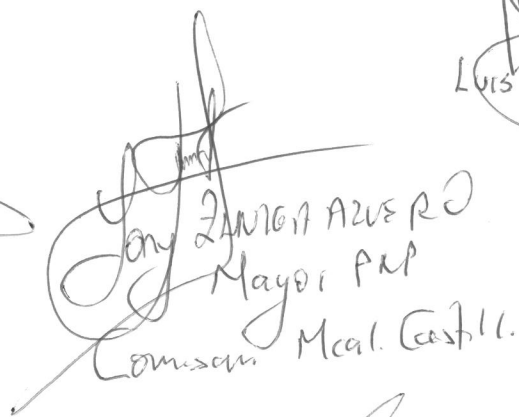 Luis
Jony ZUNIGA AZVERO
Mayor PNP
Comisario Mcal. Castill.